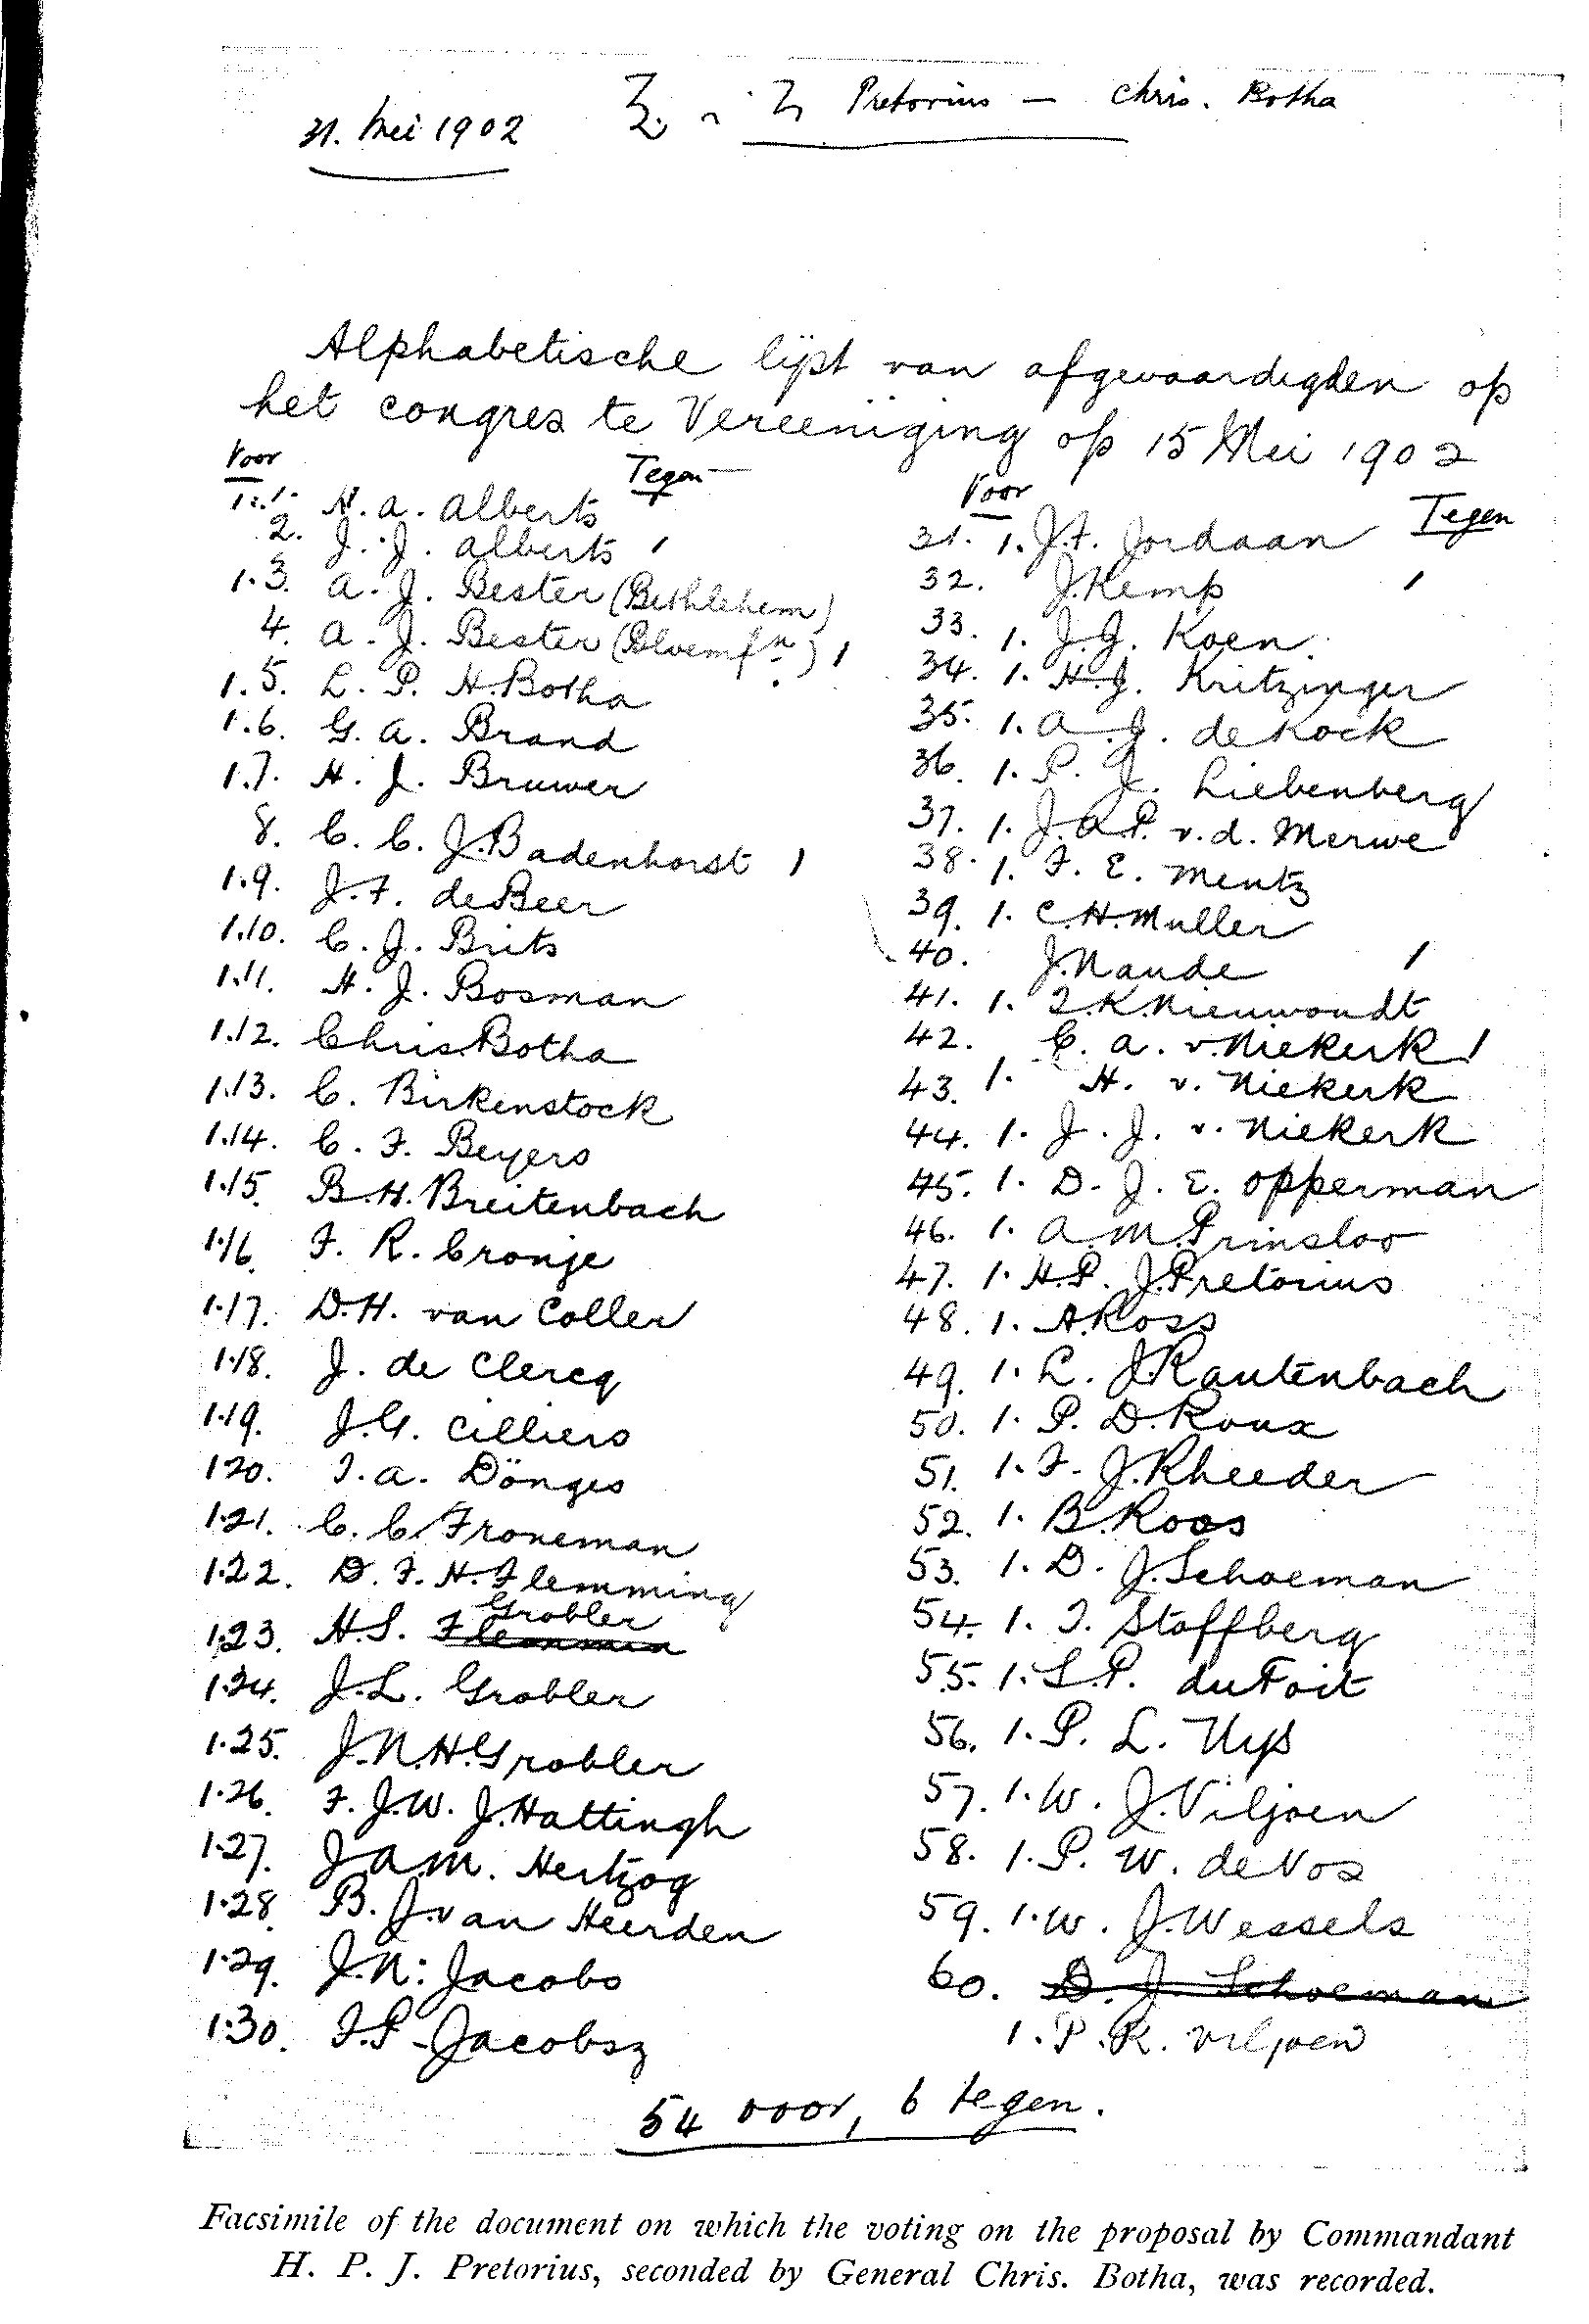 31. Mei 1902
Pretorius — Chris. Botha
Alphabetische lijst van afgevaardigden op
het congres te Vereeniging op 15 Mei 1902
Voor Tegen
1. 1. H. A. Alberts
2. J. J. Alberts 1
1. 3. A. J. Bester (Bethlehem)
4. A. J. Bester (Bloemfn.) 1
1. 5. L. P. H. Botha
1. 6. G. A. Brand
1. 7. H. J. Bruwer
8. C. C. J. Badenhorst 1
1. 9. J. F. de Beer
1. 10. C. J. Brits
1. 11. H. J. Bosman
1. 12. Chris Botha
1. 13. C. Birkenstock
1. 14. C. F. Beyers
1. 15. B. H. Breitenbach
1. 16. F. R. Cronje
1. 17. D. H. van Coller
1. 18. J. de Clercq
1. 19. J. G. Cilliers
1. 20. J. A. Dönges
1. 21. C. C. Froneman
1. 22. D. F. H. Flemming
1. 23. H. S. Grobler
1. 24. J. L. Grobler
1. 25. J. N. H. Grobler
1. 26. F. J. W. J. Hattingh
1. 27. J A M. Hertzog
1. 28. B. J. van Heerden
1. 29. J. N. Jacobs
1. 30. F. P. Jacobsz
Voor Tegen
31. 1. J. F. Jordaan
32. J. Kemp 1
33. 1. J. J. Koen
34. 1. H. J. Kritzinger
35. 1. A. J. de Kock
36. 1. P. J. Liebenberg
37. 1. J. A. P. v. d. Merwe
38. 1. F. E. Mentz
39. 1. C. H. Muller
40. J. Naude 1
41. 1. J. K. Nieuwoudt
42. C. A. v. Niekerk 1
43. 1. H. v. Niekerk
44. 1. J. J. v. Niekerk
45. 1. D. J. E. Opperman
46. 1. A. M. Prinsloo
47. 1. H. P. J. Pretorius
48. 1. A. Ross
49. 1. L. J. Rautenbach
50. 1. P. D. Roux
51. 1. F. J. Rheeder
52. 1. B. Roos
53. 1. D. J. Schoeman
54. 1. J. Stoffberg
55. 1. S. P. du Toit
56. 1. P. L. Uys
57. 1. W. J. Viljoen
58. 1. P. W. de Vos
59. 1. W. J. Wessels
60. D. J. Schoeman
1. P. R. Viljoen
54 voor, 6 tegen.
Facsimile of the document on which the voting on the proposal by Commandant
H. P. J. Pretorius, seconded by General Chris. Botha, was recorded.